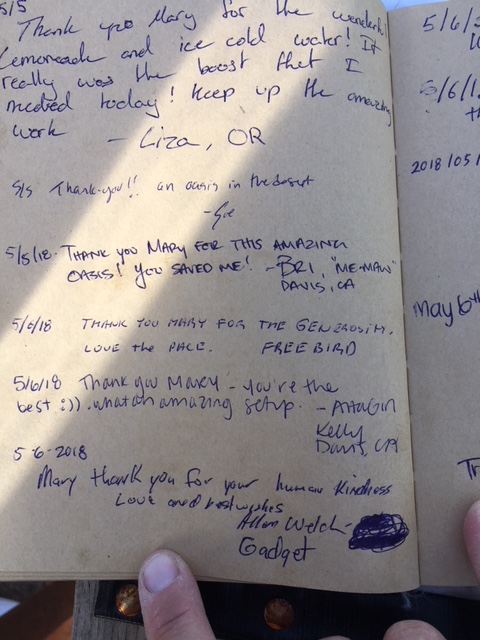 5/5
Thank you Mary for the wonderful
Lemoneade and ice cold water! It
really was the boost that I
needed today! Keep up the amazing
work
- Liza, OR
5/5 Thank-you!! an oasis in the desert
5/5/18 - THANK YOU MARY FOR THIS AMAZING
OASIS! YOU SAVED ME! - BRI, "ME-MAW"
DAVIS, CA
5/6/18 THANK YOU MARY FOR THE GENEROSITY.
LOVE the PLACE. FREEBIRD
5/6/18 Thank you MARY - you're the
best :)). what an amazing setup. -
Kelly
Davis, CA
5-6-2018
Mary thank you for your human kindness
Love and best wishes
Allan Welch -
Gadget
5/6/
5/6/1
2018/05/
May 6th